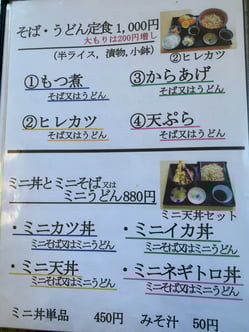 そば・うどん定食 1,000円
大もりは200円増し
(半ライス, 漬物, 小鉢)
②ヒレカツ
①もつ煮
そば又はうどん
③からあげ
そば又はうどん
②ヒレカツ
そば又はうどん
④天ぷら
そば又はうどん
ミニ丼とミニそば又は
ミニうどん880円
ミニ天丼セット
・ミニカツ丼
ミニそば又はミニうどん
・ミニイカ丼
ミニそば又はミニうどん
・ミニ天丼
ミニそば又はミニうどん
・ミニネギトロ丼
ミニそば又はミニうどん
ミニ丼単品 450円 みそ汁 50円